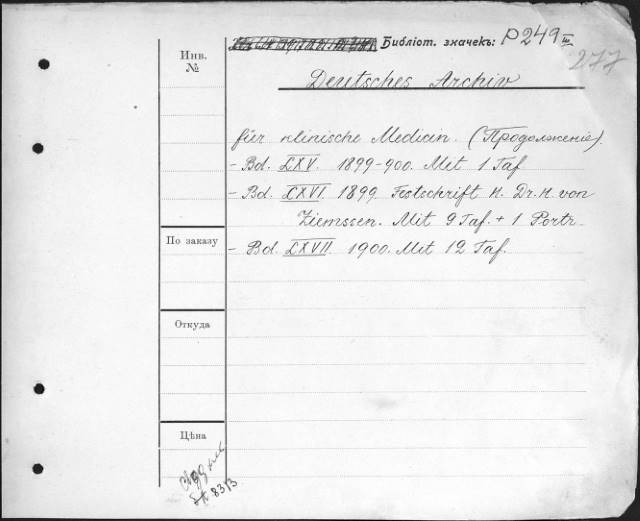 Библіот. значекъ: P249 III
277
Инв.
№
Deutsches Archiv
für klinische Medicin. (Продолженіе).
- Bd. LXV. 1899-900. Mit 1 Taf
- Bd. LXVI. 1899. Festschrift H. Dr. H. von
Ziemssen. Mit 9 Taf. + 1 Portr.
По заказу
- Bd. LXVII. 1900. Mit 12 Taf.
Откуда
Цѣна
8313